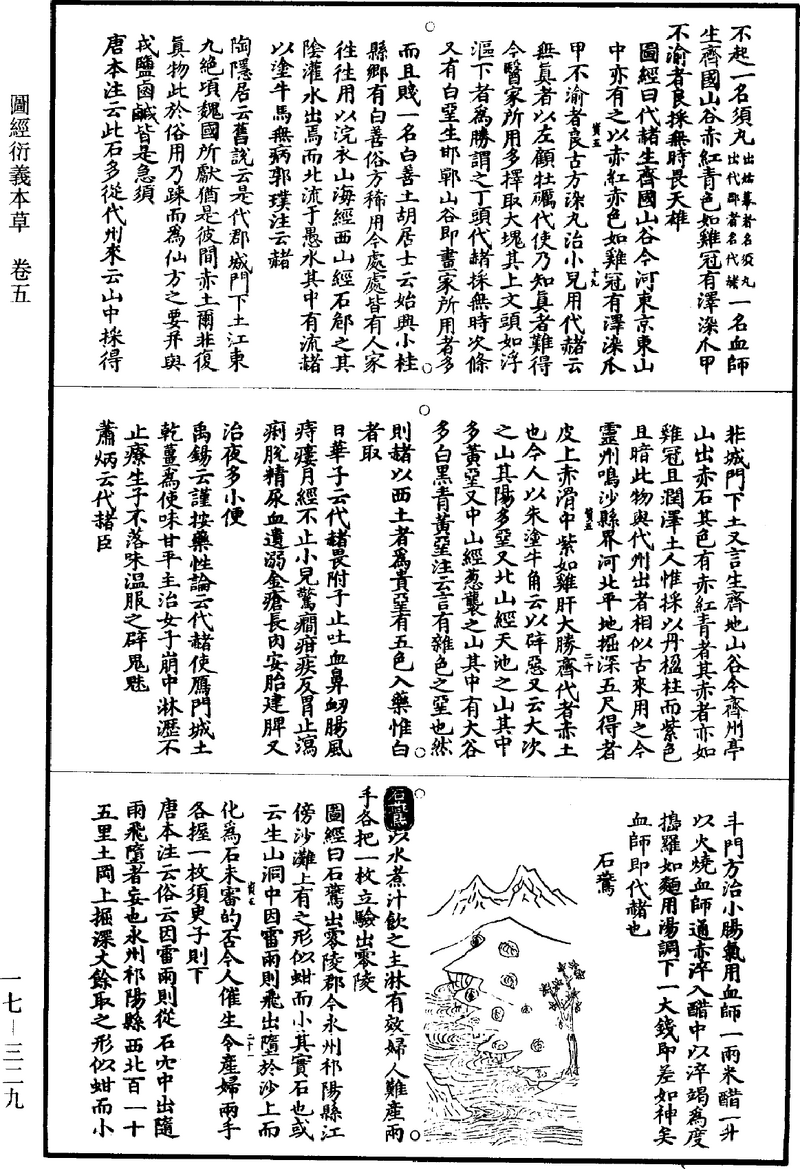 圖經衍義本草 卷五
不起一名須丸出姑幕者名須丸出代郡者名代赭一名血師
生齊國山谷赤紅青色如雞冠有澤染爪甲
不渝者良採無時畏天雄
圖經曰代赭生齊國山谷今河東京東山
中亦有之以赤紅赤色如雞冠有澤染爪
甲不渝者良古方深丸治小兒用代赭云
無真者以左顧牡礪代使乃知真者難得
今醫家所用多擇取大塊其上文頭如浮
漚下者為勝謂之丁頭代赭採無時次條
又有白堊生邯鄲山谷即畫家所用者多
而且賤一名白善土胡居士云始興小桂
縣鄉有白善俗方稀用今處處皆有人家
往往用以浣衣山海經西山經石郤之其
陰灌水出焉而北流于愚水其中有流赭
以塗牛馬無病郭璞注云赭
陶隱居云舊說云是代郡城門下土江東
九絕頃魏國所獻猶是彼間赤土爾非復
真物此於俗用乃踈而為仙方之要并與
戎鹽鹵鹹皆是急須
唐本注云此石多從代州來云山中採得
非城門下土又言生齊地山谷今齊州亭
山出赤石其色有赤紅青者其赤者亦如
雞冠且潤澤土人惟採以丹楹柱而紫色
且暗此物與代州出者相似古來用之今
靈州鳴沙縣界河北平地掘深五尺得者
皮上赤滑中紫如雞肝大勝齊代者赤土
也今人以朱塗牛角云以辟惡又云大次
之山其陽多堊又北山經天池之山其中
多黃堊又中山經葱聾之山其中有大谷
多白黑青黃堊注云言有雜色之堊也然
則赭以西土者為貴堊有五色入藥惟白
者取
日華子云代赭畏附子止吐血鼻衂腸風
痔瘻月經不止小兒驚癇疳疾反胃止瀉
痢脫精尿血遺溺金瘡長肉安胎建脾又
治夜多小便
禹錫云謹按藥性論云代赭使鴈門城土
乾薑為使味甘平主治女子崩中淋瀝不
止療生子不落味温服之辟鬼魅
蕭炳云代赭臣
斗門方治小腸氣用血師一兩米醋一升
以火燒血師通赤淬入醋中以淬竭為度
擣羅如麵用湯調下一大錢即差如神矣
血師即代赭也
石鷰
石鷰以水煮汁飲之主淋有效婦人難產兩
手各把一枚立驗出零陵
圖經曰石鷰出零陵郡今永州祁陽縣江
傍沙灘上有之形似蚶而小其實石也或
云生山洞中因雷雨則飛出墮於沙上而
化為石未審的否今人催生令產婦兩手
各握一枚須臾子則下
唐本注云俗云因雷雨則從石穴中出隨
雨飛墮者妄也永州祁陽縣西北百一十
五里土岡上掘深丈餘取之形似蚶而小
一七—三二九